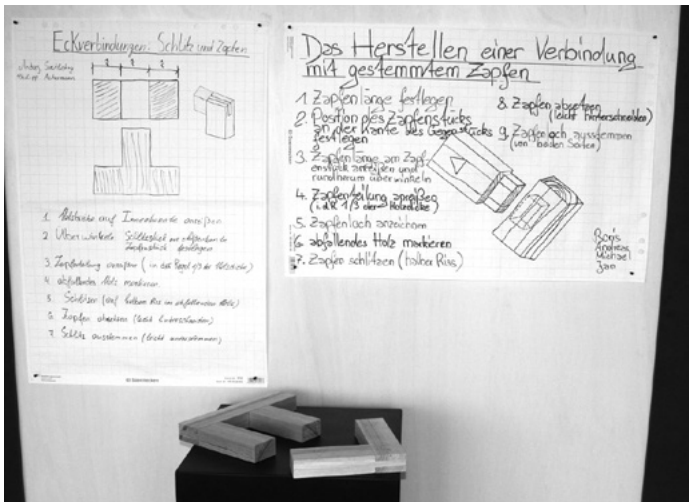 Eckverbindungen: Schlitz und Zapfen
1. Holzbreite auf Innenkante anreißen
2 Überwinkeln
3. Zapfenteilung anreißen (in der Regel 1/3 der Holzdicke)
4 abfallendes Holz markieren
5. Schlitzen (auf halbem Riss im abfallenden Holz)
6. Zapfen absetzen (leicht hinterschneiden)
7. Schlitz ausstemmen (leicht unterstemmen)
Das Herstellen einer Verbindung
mit gestemmtem Zapfen
1 Zapfenlänge festlegen
2. Position des Zapfenstücks
an der Kante des Gegenstücks
festlegen
3. Zapfenlänge am Zapf-
enstück anreißen und
rundherum überwinkeln
4. Zapfenteilung anreißen
(i.d.R 1/3 der Holzdicke)
5. Zapfenloch anzeichnen
6. abfallendes Holz markieren
7. Zapfen schlitzen (halber Riss)
8. Zapfen absetzen
(leicht hinterschneiden)
9. Zapfenloch ausstemmen
(von beiden Seiten)
Boris
Andreas
Michael
Jan